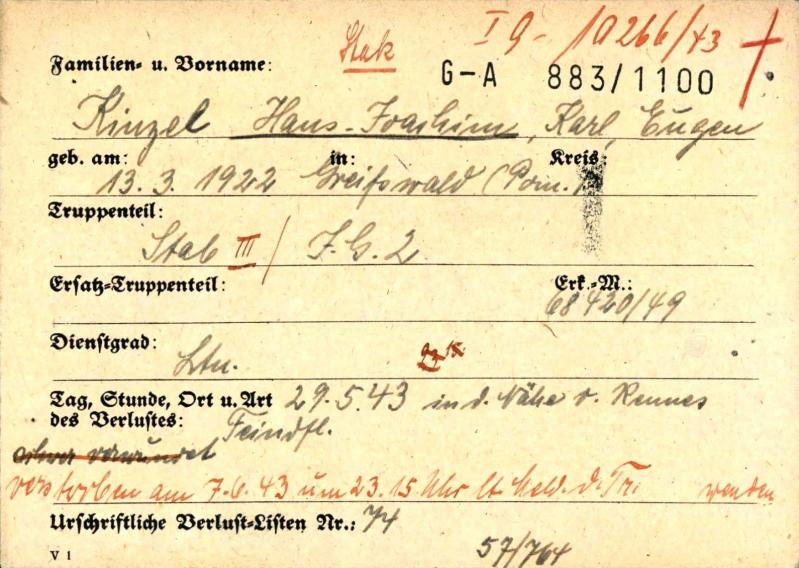 Stak I 9 - 10266/43
Familien- u. Vorname: G-A 883/1100
Kinzel Hans-Joachim, Karl, Eugen
geb. am: in: Kreis:
13. 3. 1922 Greifswald (Pom.)
Truppenteil:
Stab III / J. G. 2
Ersatz-Truppenteil: Erk.-M.:
68420/49
Dienstgrad:
Ltn.
Tag, Stunde, Ort u. Art 29.5.43 in d. Nähe v. Rennes
des Verlustes: Feindfl.
schwer verwundet
verstorben am 7.6.43 um 23.15 Uhr lt. Meld. d. Tr. wenden
Urschriftliche Verlust-Listen Nr.: 74
V 1 57/764